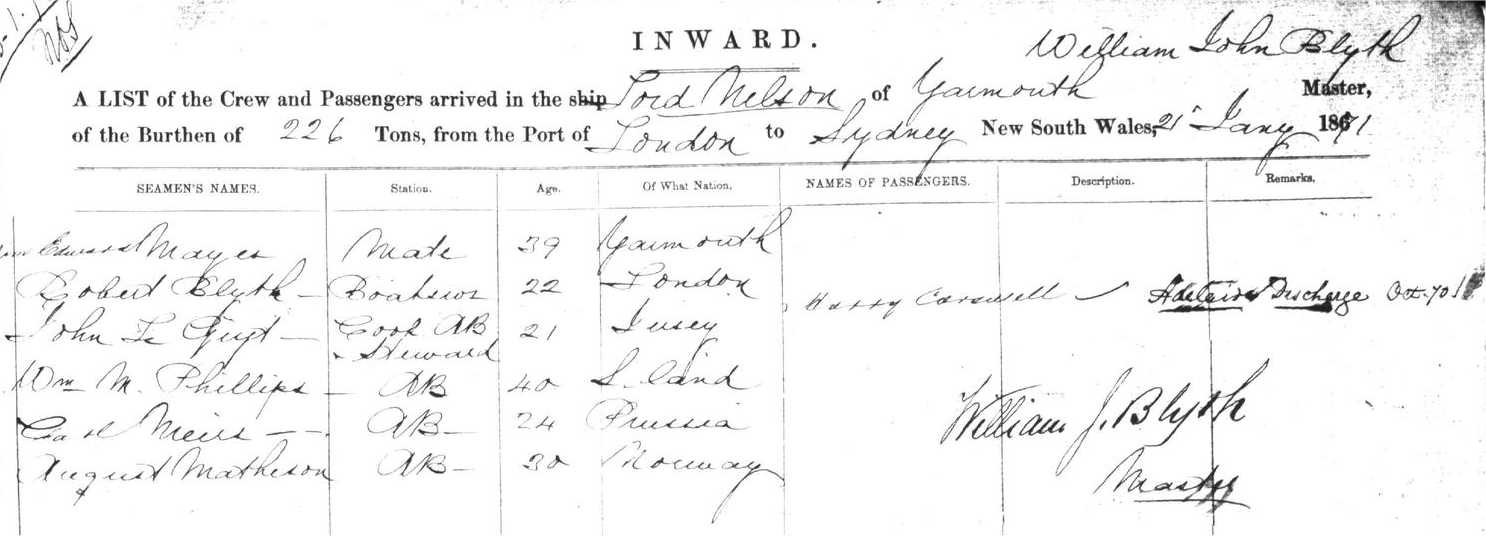 INWARD.
William John Blyth
A LIST of the Crew and Passengers arrived in the ship Lord Nelson of Yarmouth Master,
of the Burthen of 226 Tons, from the Port of London to Sydney New South Wales, 21st Jany 1871
SEAMEN'S NAMES. Station. Age. Of What Nation. NAMES OF PASSENGERS. Description. Remarks.
Edward Mayes Mate 39 Yarmouth
Robert Blyth - Boatswn 22 London Harry Carswell Adelaide Discharge Oct. 70
John Le - Cook AB & Steward 21 Jersey
Wm M. Phillips - AB 40 land
Carl Meirs - - AB - 24 Prussia
August Matheson AB - 30 Norway
William J. Blyth
Master